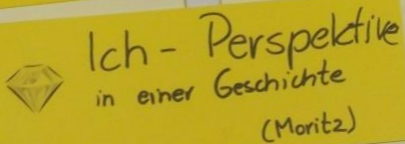 Ich - Perspektive
in einer Geschichte
(Moritz)